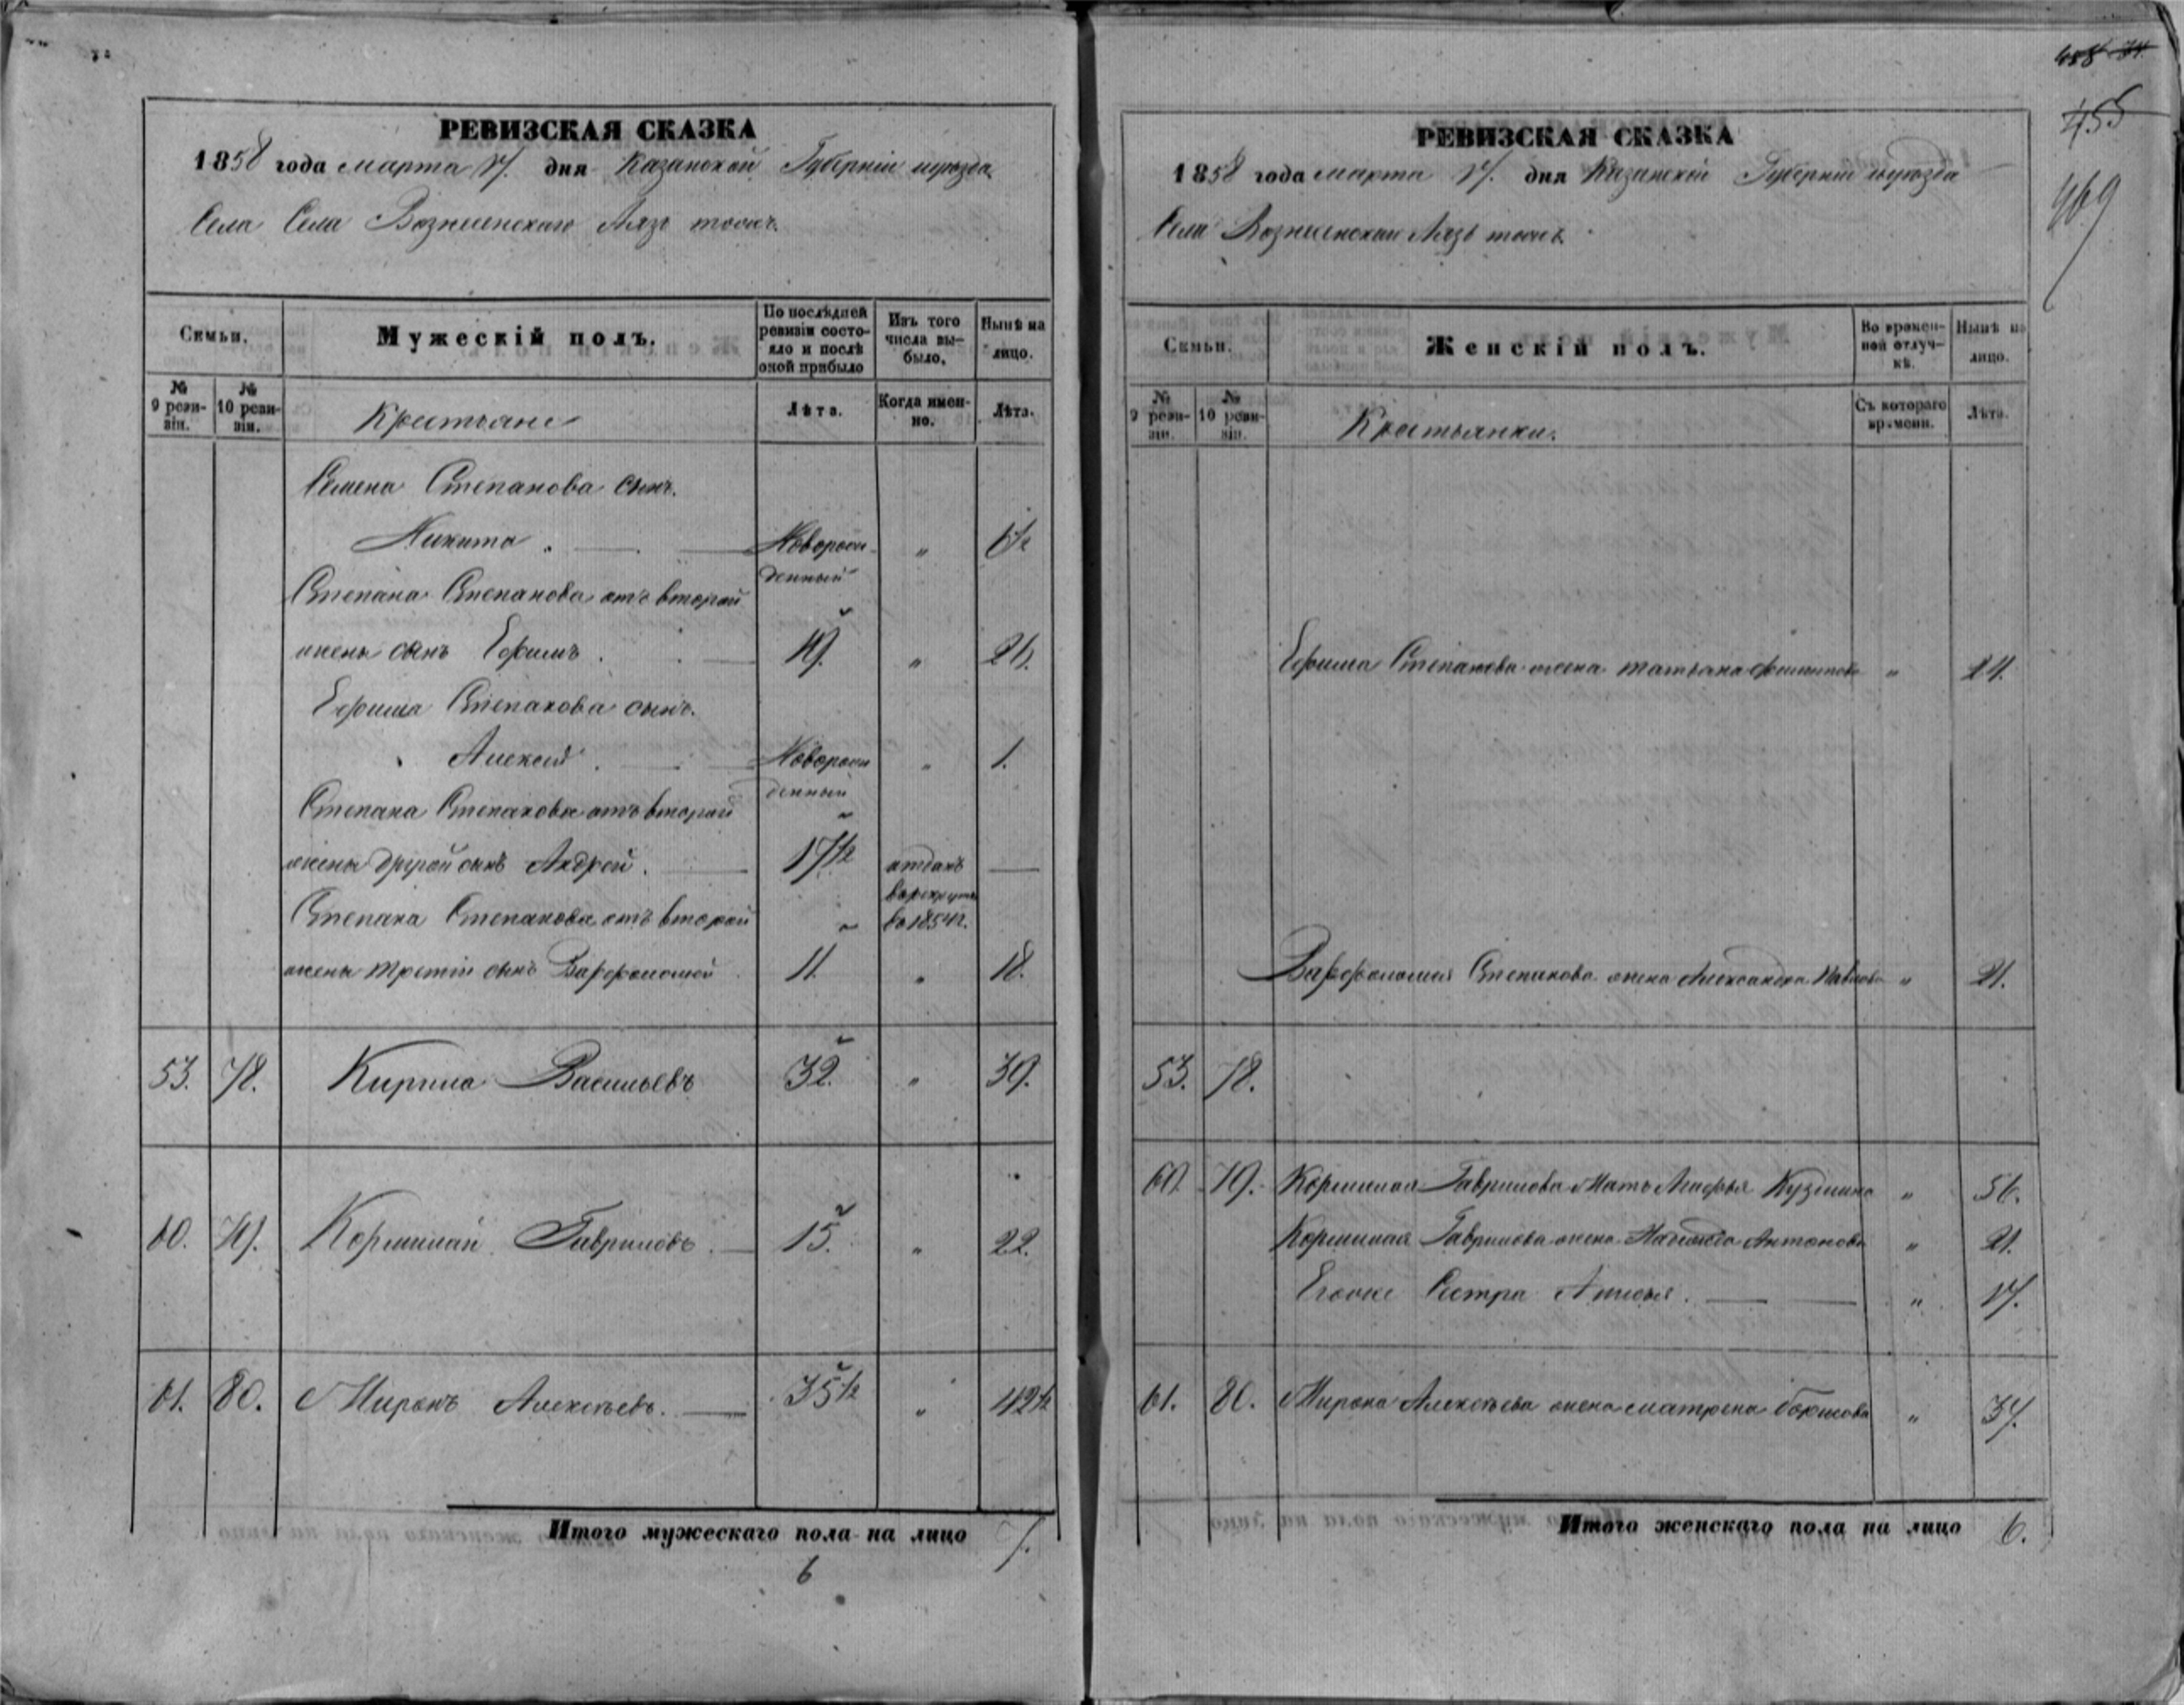 РЕВИЗСКАЯ СКАЗКА
1858 года марта 17. дня Казанской Губерніи и уѣзда
Села Села Вознесенскаго
Семьи.
Мужескій полъ.
По послѣдней ревизіи состояло и послѣ оной прибыло
Изъ того числа выбыло.
Нынѣ на лицо.
№ 9 ревизіи.
№ 10 ревизіи.
Крестьяне
Лѣта.
Когда именно.
Лѣта.
Семена Степанова сынъ.
Никита . Новорож- „
денный
Степана Степанова отъ второй
жены сынъ Ефимъ . 19. „ 26.
Ефима Степанова сынъ.
Алексей . Новорож „ 1.
денный
Степана Степанова отъ второй
жены другой сынъ Андрей . 17½ отданъ —
в рекруты
Степана Степанова отъ второй в 1854 г.
жены третій сынъ Варфоломей 11. „ 18.
53. 78. Кирила Васильевъ 32. „ 39.
60. 79. Гавриловъ . 15. „ 22.
61. 80. Миронъ Алексѣевъ. 35½ „ 42½
Итого мужескаго пола на лицо 7.
6
458
455
469
РЕВИЗСКАЯ СКАЗКА
1858 года марта 17. дня Казанской Губерніи и уѣзда
Села Вознесенскаго
Семьи.
Женскій полъ.
Во временной отлучкѣ.
Нынѣ на лицо.
№ 9 ревизіи.
№ 10 ревизіи.
Крестьянки.
Съ котораго времени.
Лѣта.
Ефима Степанова жена Татьяна Филиппова „ 24.
Варфоломея Степанова жена Александра Павлова „ 21.
53. 78.
60. 79. Гаврилова Мать Агафья Кузмина „ 56.
Гаврилова жена Надежда Антонова „ 21.
Егоже Сестра „ 17.
61. 80. Мирона Алексѣева жена Матрена „ 37.
Итого женскаго пола на лицо 6.